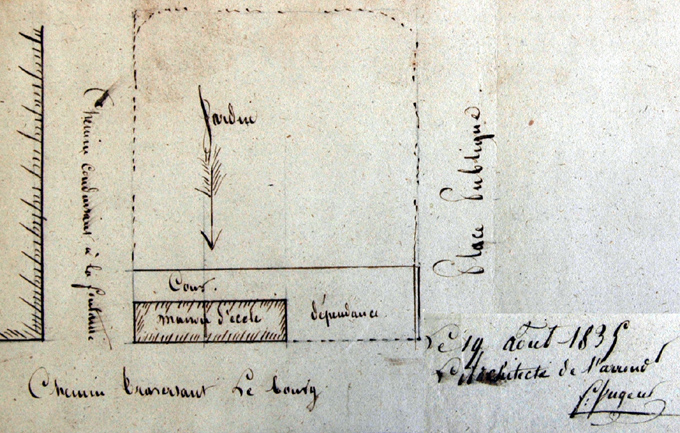 Jardin
Chemin conduisant à la fontaine
Place Publique
Cour
maison d'école
dépendance
Chemin traversant Le bourg
Le 19 août 1835
L'Architecte de l'arrond^t